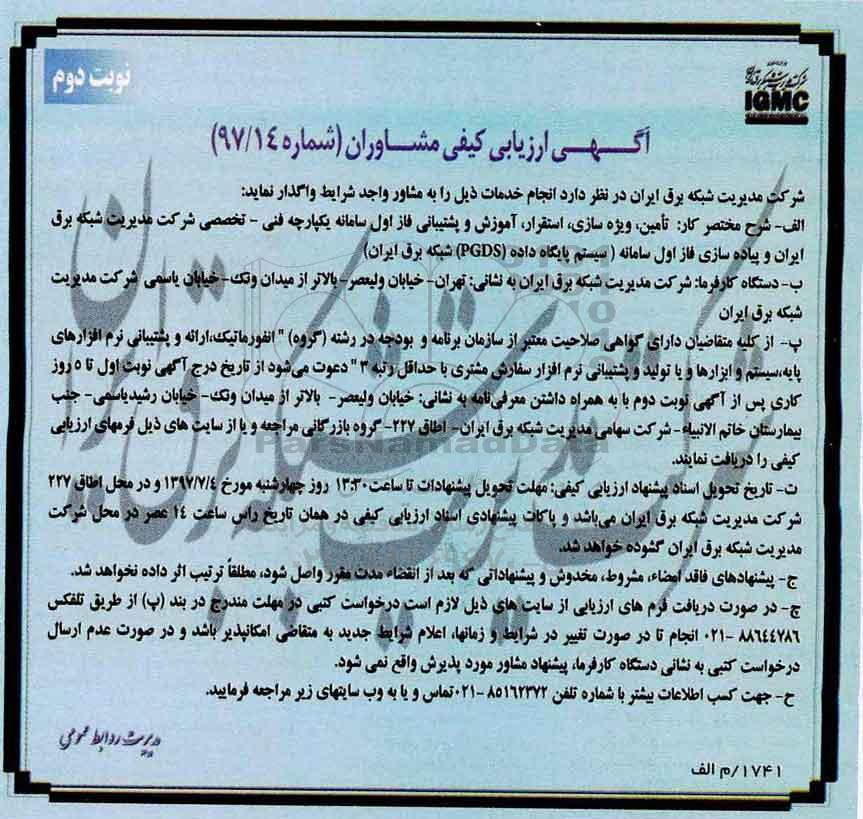 نوبت دوم
شرکت مدیریت شبکه برق ایران
IGMC
آگهی ارزیابی کیفی مشاوران (شماره ۹۷/۱۴)
شرکت مدیریت شبکه برق ایران در نظر دارد انجام خدمات ذیل را به مشاور واجد شرایط واگذار نماید:
الف- شرح مختصر کار: تأمین، ویژه سازی، استقرار، آموزش و پشتیبانی فاز اول سامانه یکپارچه فنی - تخصصی شرکت مدیریت شبکه برق
ایران و پیاده سازی فاز اول سامانه ( سیستم پایگاه داده (PGDS) شبکه برق ایران)
ب- دستگاه کارفرما: شرکت مدیریت شبکه برق ایران به نشانی: تهران- خیابان ولیعصر- بالاتر از میدان ونک- خیابان یاسمی شرکت مدیریت
شبکه برق ایران
پ- از کلیه متقاضیان دارای گواهی صلاحیت معتبر از سازمان برنامه و بودجه در رشته (گروه) " انفورماتیک،ارائه و پشتیبانی نرم افزارهای
پایه،سیستم و ابزارها و یا تولید و پشتیبانی نرم افزار سفارش مشتری با حداقل رتبه ۳ " دعوت می‌شود از تاریخ درج آگهی نوبت اول تا ۵ روز
کاری پس از آگهی نوبت دوم با به همراه داشتن معرفی‌نامه به نشانی: خیابان ولیعصر- بالاتر از میدان ونک- خیابان رشیدیاسمی- جنب
بیمارستان خاتم الانبیاء- شرکت سهامی مدیریت شبکه برق ایران- اطاق ۲۲۷- گروه بازرگانی مراجعه و یا از سایت های ذیل فرمهای ارزیابی
کیفی را دریافت نمایند.
ت- تاریخ تحویل اسناد پیشنهاد ارزیابی کیفی: مهلت تحویل پیشنهادات تا ساعت ۱۳:۳۰ روز چهارشنبه مورخ ۱۳۹۷/۷/۴ و در محل اطاق ۲۲۷
شرکت مدیریت شبکه برق ایران می‌باشد و پاکات پیشنهادی اسناد ارزیابی کیفی در همان تاریخ راس ساعت ۱۴ عصر در محل شرکت
مدیریت شبکه برق ایران گشوده خواهد شد.
ج- پیشنهادهای فاقد امضاء، مشروط، مخدوش و پیشنهاداتی که بعد از انقضاء مدت مقرر واصل شود، مطلقاً ترتیب اثر داده نخواهد شد.
چ- در صورت دریافت فرم های ارزیابی از سایت های ذیل لازم است درخواست کتبی در مهلت مندرج در بند (پ) از طریق تلفکس
۸۸۶۴۴۷۸۶ -۰۲۱ انجام تا در صورت تغییر در شرایط و زمانها، اعلام شرایط جدید به متقاضی امکانپذیر باشد و در صورت عدم ارسال
درخواست کتبی به نشانی دستگاه کارفرما، پیشنهاد مشاور مورد پذیرش واقع نمی شود.
ح- جهت کسب اطلاعات بیشتر با شماره تلفن ۸۵۱۶۲۳۷۲ -۰۲۱تماس و یا به وب سایتهای زیر مراجعه فرمایید.
مدیریت روابط عمومی
۱۷۴۱/م الف
ParsNamadData